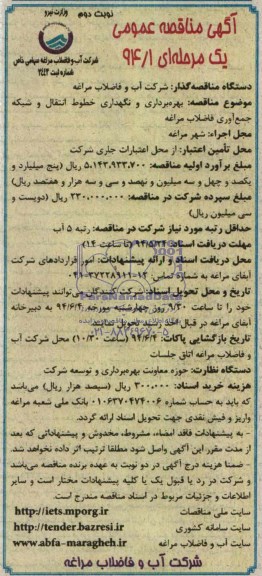 نوبت دوم
وزارت نیرو
شرکت آب و فاضلاب مراغه سهامی خاص
شماره ثبت ۲۴۴۲
آگهی مناقصه عمومی
یک مرحله‌ای ۹۴/۱
دستگاه مناقصه‌گذار: شرکت آب و فاضلاب مراغه
موضوع مناقصه: بهره‌برداری و نگهداری خطوط انتقال و شبکه
جمع‌آوری فاضلاب مراغه
محل اجراء: شهر مراغه
محل تأمین اعتبار: از محل اعتبارات جاری شرکت
مبلغ برآورد اولیه مناقصه: ۵،۱۴۳،۹۳۳،۷۰۰ ریال (پنج میلیارد و
یکصد و چهل و سه میلیون و نهصد و سی و سه هزار و هفتصد ریال)
مبلغ سپرده شرکت در مناقصه: ۲۳۰،۰۰۰،۰۰۰ ریال (دویست و
سی میلیون ریال)
حداقل رتبه مورد نیاز شرکت در مناقصه: رتبه ۵ آب
مهلت دریافت اسناد: ۹۴/۵/۲۴ (تا ساعت ۱۴)
محل دریافت اسناد و ارائه پیشنهادات: امور قراردادهای شرکت
آبفای مراغه به شماره تماس: ۱۳-۳۷۲۲۸۹۱۱-۰۴۱
تاریخ و محل تحویل اسناد: شرکت کنندگان می‌توانند پیشنهادات
خود را تا ساعت ۹/۳۰ روز چهارشنبه مورخه ۹۴/۶/۴ به دبیرخانه
آبفای مراغه در قبال اخذ رسید تحویل نمایند.
تاریخ بازگشایی پاکات: ۹۴/۶/۴ (ساعت ۱۰/۳۰) محل شرکت آب
و فاضلاب مراغه اتاق جلسات
دستگاه نظارت: حوزه معاونت بهره‌برداری و توسعه شرکت
هزینه خرید اسناد: ۳۰۰،۰۰۰ ریال (سیصد هزار ریال) می‌باشد
که باید به حساب شماره ۰۱۰۶۳۷۰۴۷۴۰۰۶ بانک ملی شعبه مراغه
واریز و فیش نقدی جهت تحویل اسناد ارائه گردد.
- به پیشنهادات فاقد امضاء، مشروط، مخدوش و پیشنهاداتی که بعد
از مدت مقرر این آگهی واصل شود مطلقا ترتیب اثر داده نخواهد شد.
- ضمنا هزینه درج آگهی در دو نوبت به عهده برنده مناقصه می‌باشد
و شرکت در رد یا قبول یک یا کلیه پیشنهادات مختار است و سایر
اطلاعات و جزئیات مربوط در اسناد مناقصه مندرج است.
سایت ملی مناقصات http://iets.mporg.ir
سایت سامانه کشوری http://tender.bazresi.ir
سایت آب و فاضلاب مراغه www.abfa-maragheh.ir
شرکت آب و فاضلاب مراغه